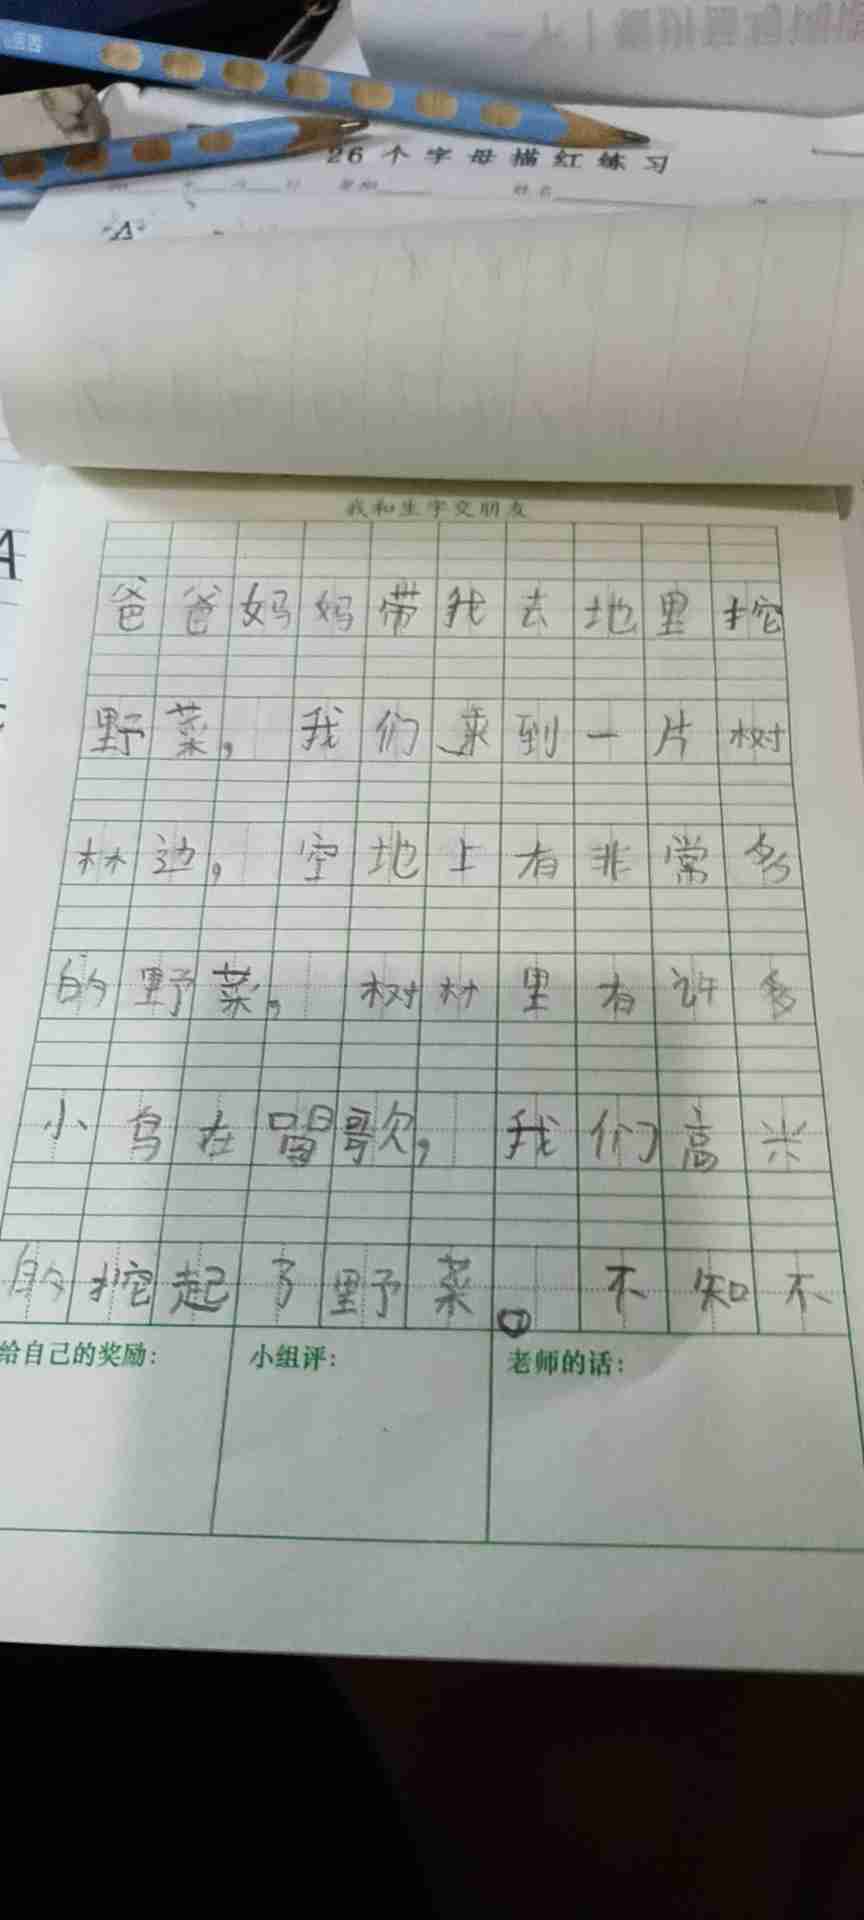 26个字母描红练习
姓名
A
我和生字交朋友
爸爸妈妈带我去地里挖
野菜，我们来到一片树
林边，空地上有非常多
的野菜。树林里有许多
小鸟在唱歌，我们高兴
的挖起了野菜。不知不
给自己的奖励：
小组评：
老师的话：